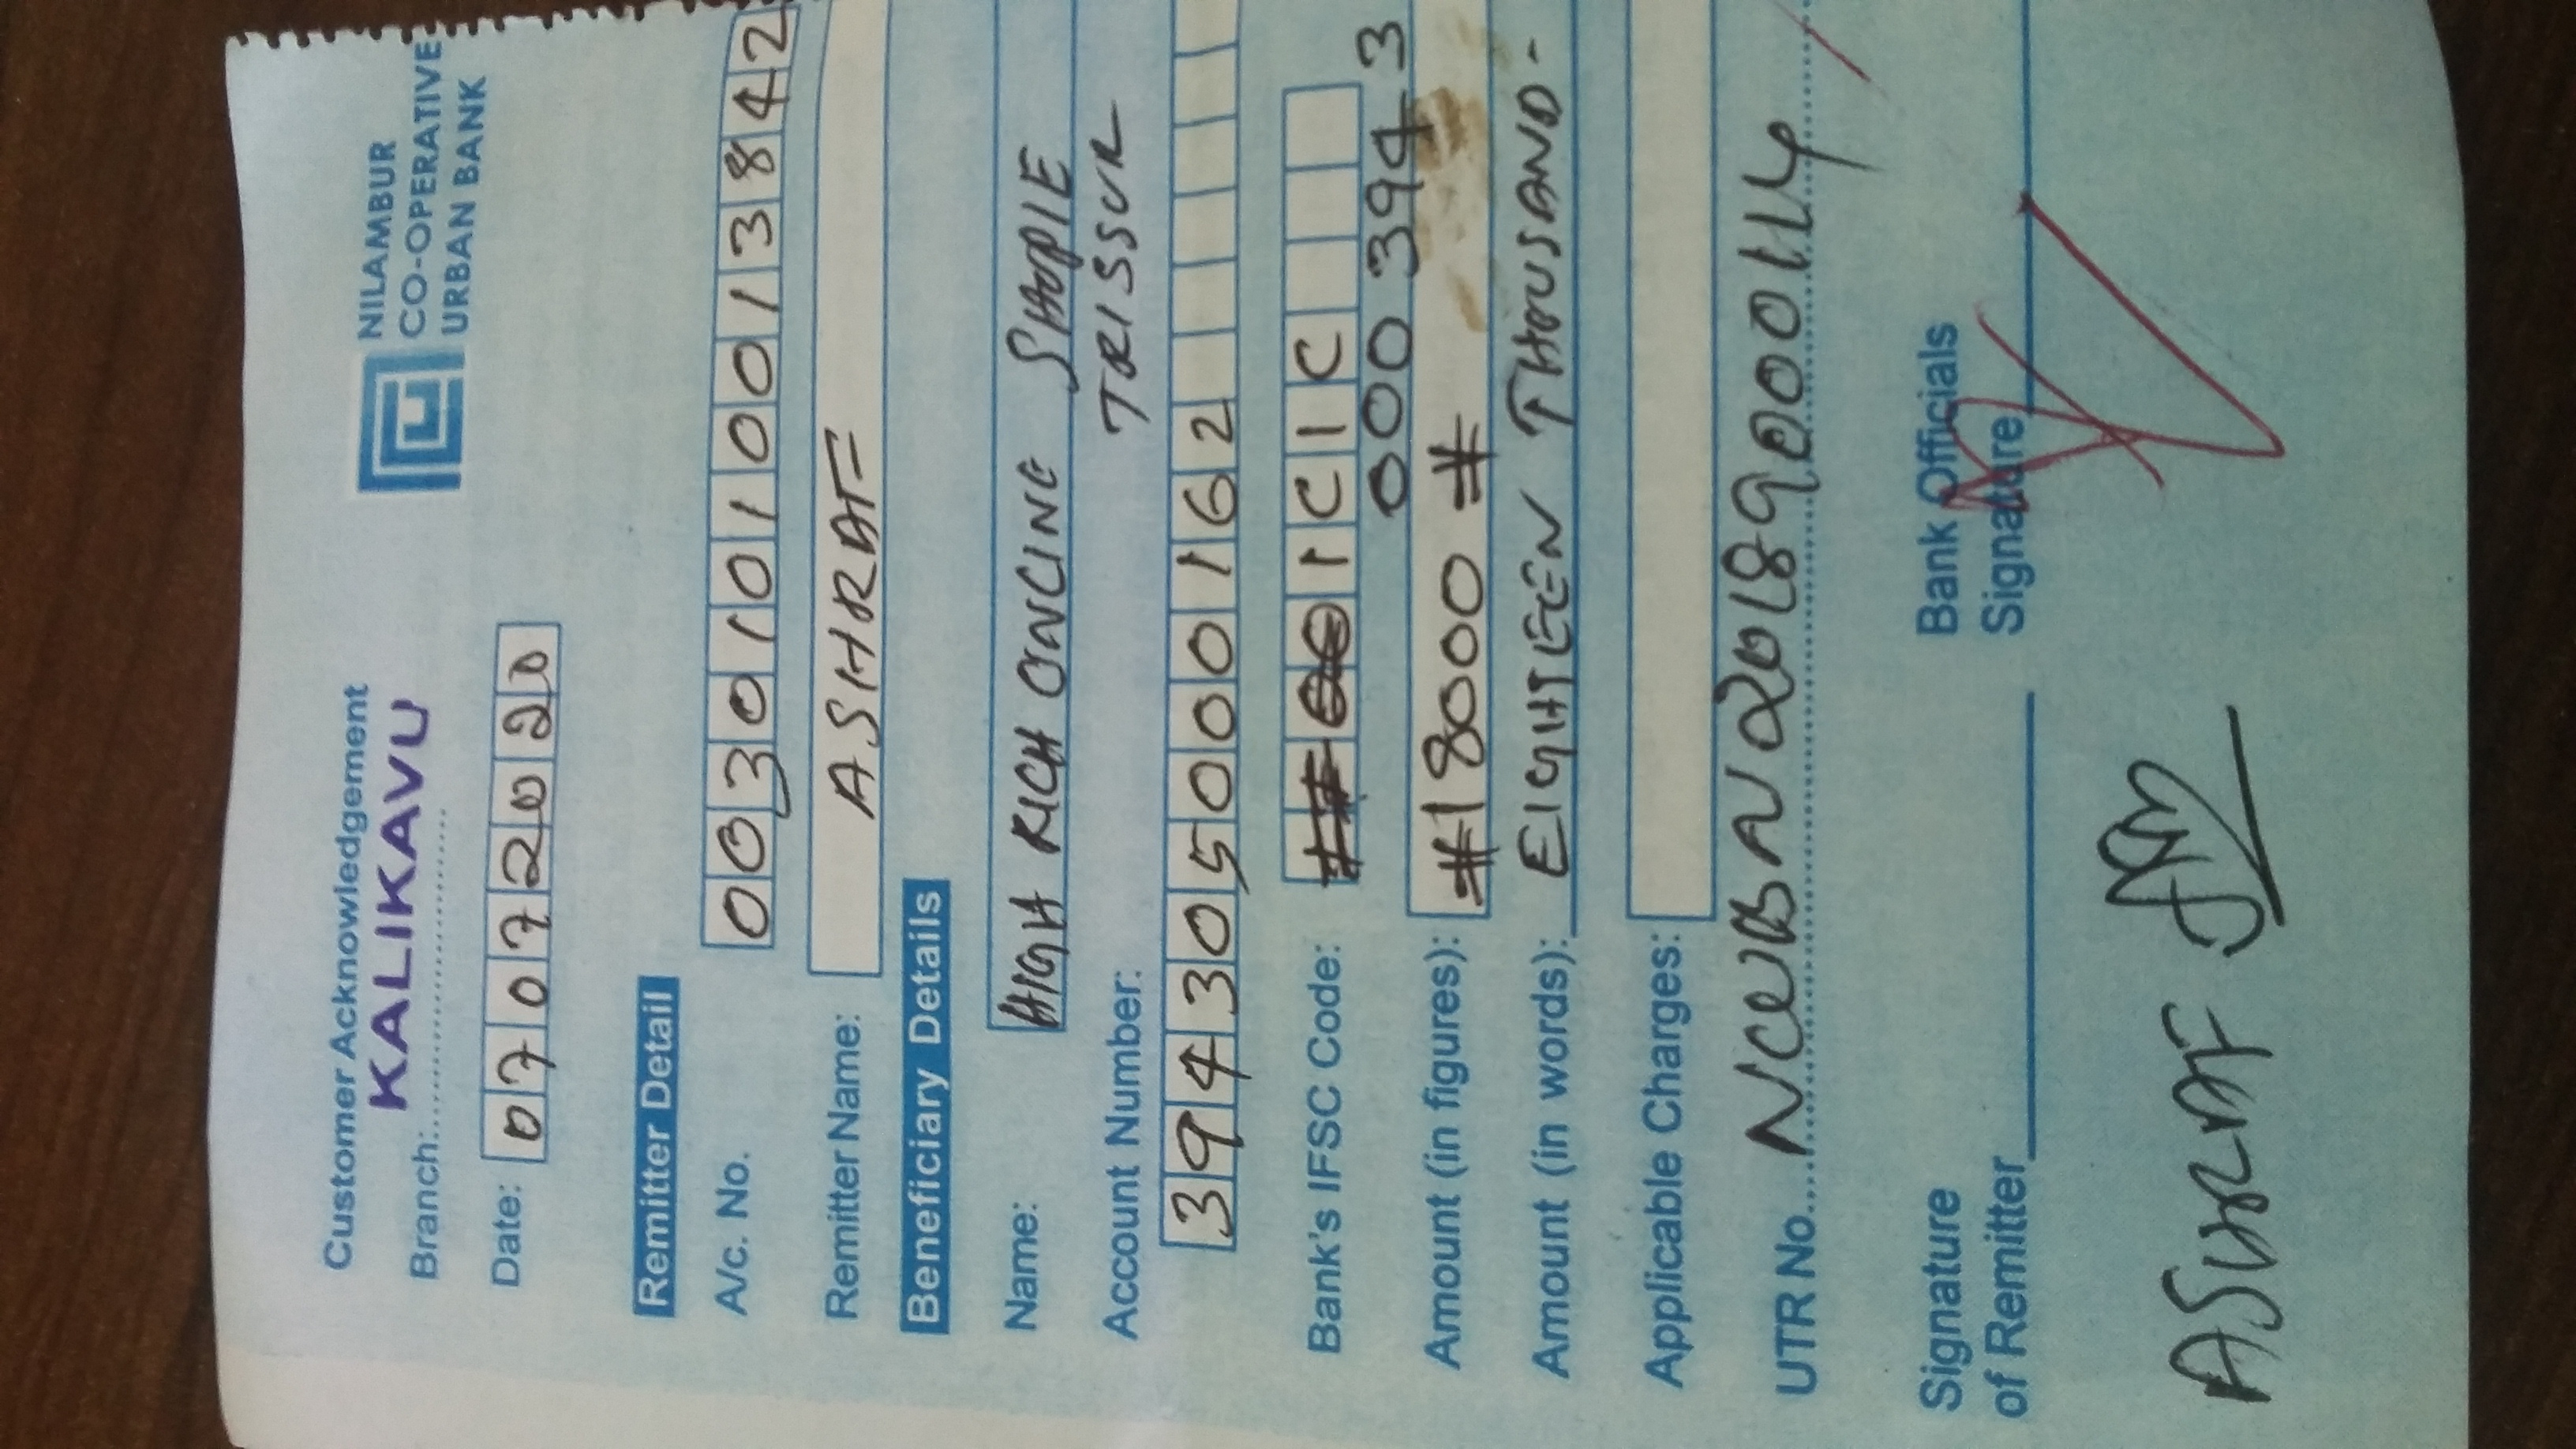 Customer Acknowledgement
KALIKAVU
Branch:............................
NILAMBUR
CO-OPERATIVE
URBAN BANK
Date: 07072020
Remitter Detail
A/c. No. 00301010013842
Remitter Name: ASHRAF
Beneficiary Details
Name: HIGH RICH ONLINE SHOPIE
TRISSUR
Account Number:
394305000162
Bank's IFSC Code: ICIC
0003943
Amount (in figures): #18000#
Amount (in words): EIGHTEEN THOUSAND-
Applicable Charges:
UTR No.... NCUBN20189000114
Signature
of Remitter
Bank Officials
Signature
ASHRAF